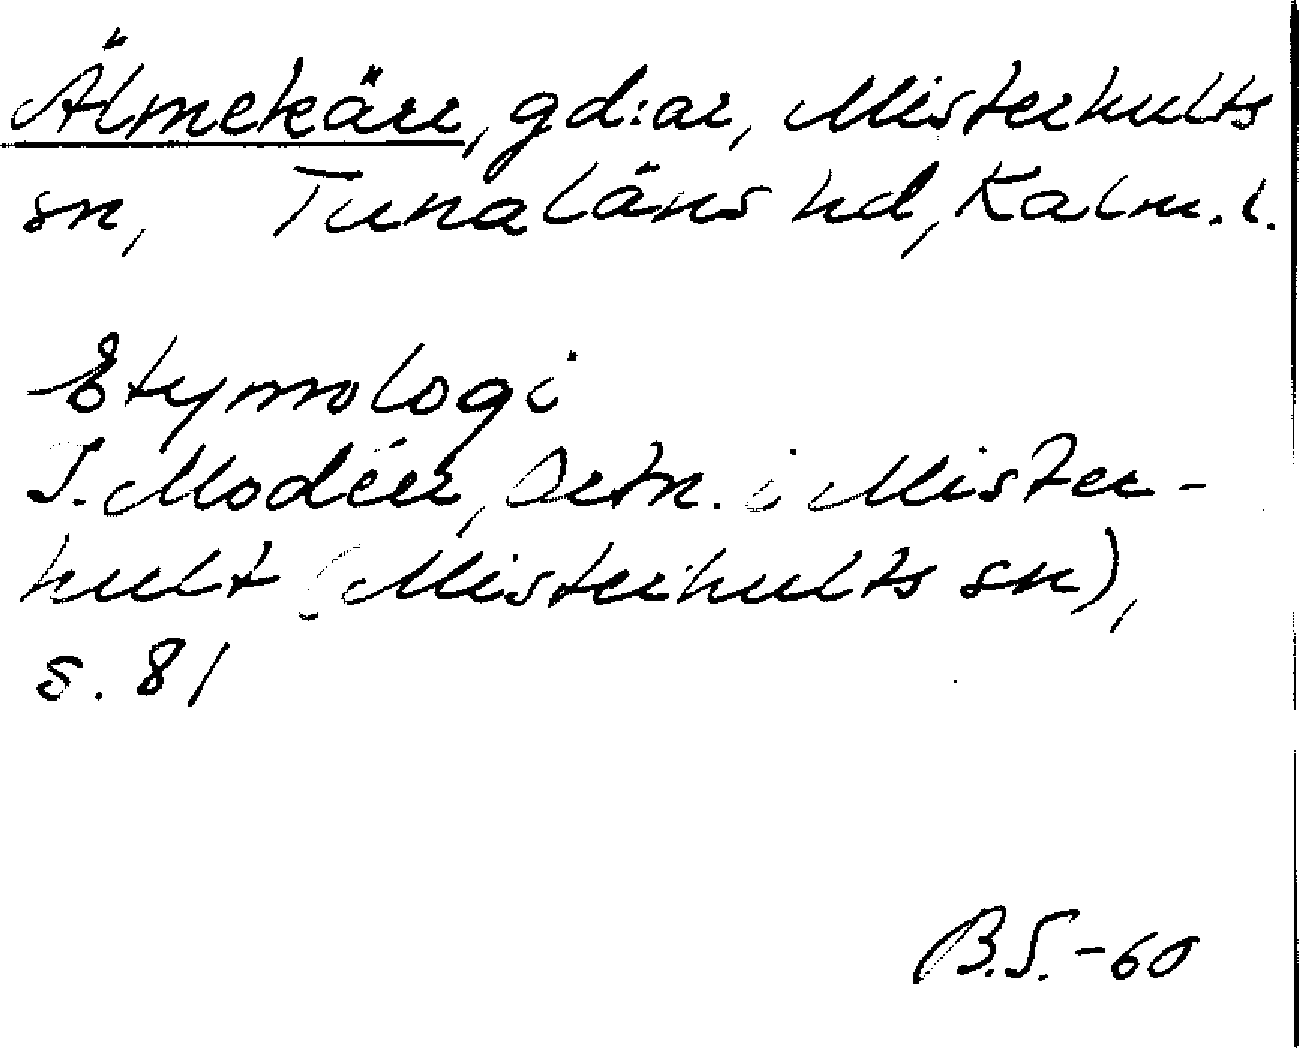 Älmekärr, gd:ar, Misterhults
sn, Tunaläns hd, Kalm. l.
Etymologi
I. Modéer, Ortn. i Mister-
hult (Misterhults sn),
s. 81
B.S.-60